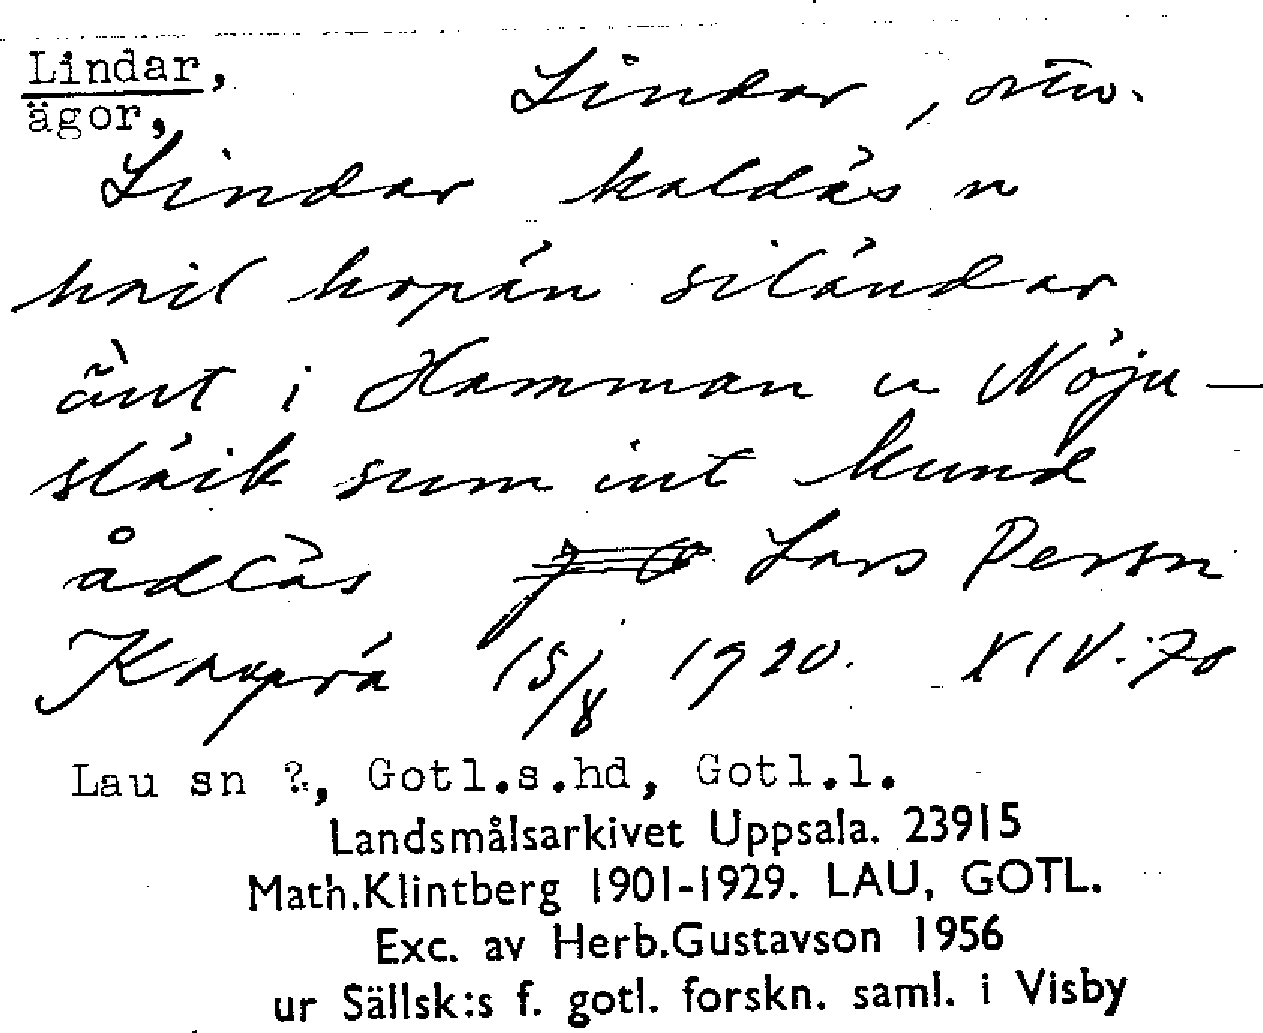 Lindar, Lindar, ortn.
ägor,
Lindar kaldäs n
hail hopán siländar
änt i Hamman u Nöju-
släik sum int kund
ådläs Lars Persn
Knuprá 15/8 1920. XIV:70
Lau sn ?, Gotl.s.hd, Gotl.l.
Landsmålsarkivet Uppsala. 23915
Math.Klintberg 1901-1929. LAU, GOTL.
Exc. av Herb.Gustavson 1956
ur Sällsk:s f. gotl. forskn. saml. i Visby